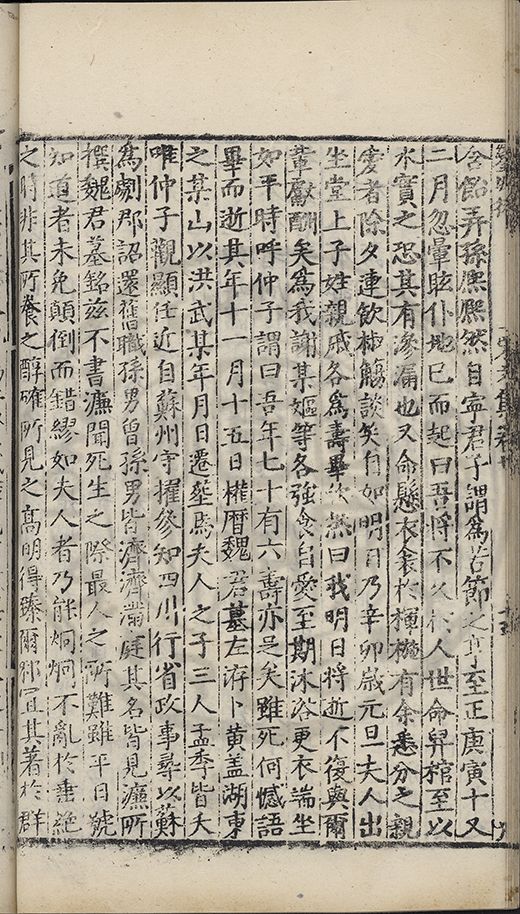 含飴弄孫熈熈然自寧君子謂爲苦節之亨至正庚寅十又
二月忽暈眩仆地已而起曰吾將不久於人世命舁棺至以
水實之恐其有滲漏也又命懸衣衾於椸椸有余悉分之親
愛者除夕連飲柹觴談笑自如明日乃辛卯歲元旦夫人出
坐堂上子姓親戚各爲壽畢夫人曰我明日將逝不復與爾
輩獻酬矣爲我謝某嫗等各強食自愛至期沐浴更衣端坐
如平時呼仲子謂曰吾年七十有六壽亦足矣雖死何憾語
畢而逝其年十一月十五日權厝魏君墓左洊卜黄盖湖東
之某山以洪武某年月日遷葬焉夫人之子三人孟季皆夭
唯仲子觀顯仕近自蘇州守擢叅知四川行省政事尋以蘇
爲劇郡詔還舊職孫男曾孫男皆濟濟滿庭其名皆見濂所
撰魏君墓銘茲不書濂聞死生之際最人之所難雖平日號
知道者未免顛倒而錯繆如夫人者乃能炯炯不亂於垂絶
之時非其所養之醇確所見之高明得臻爾邪宜其著於群